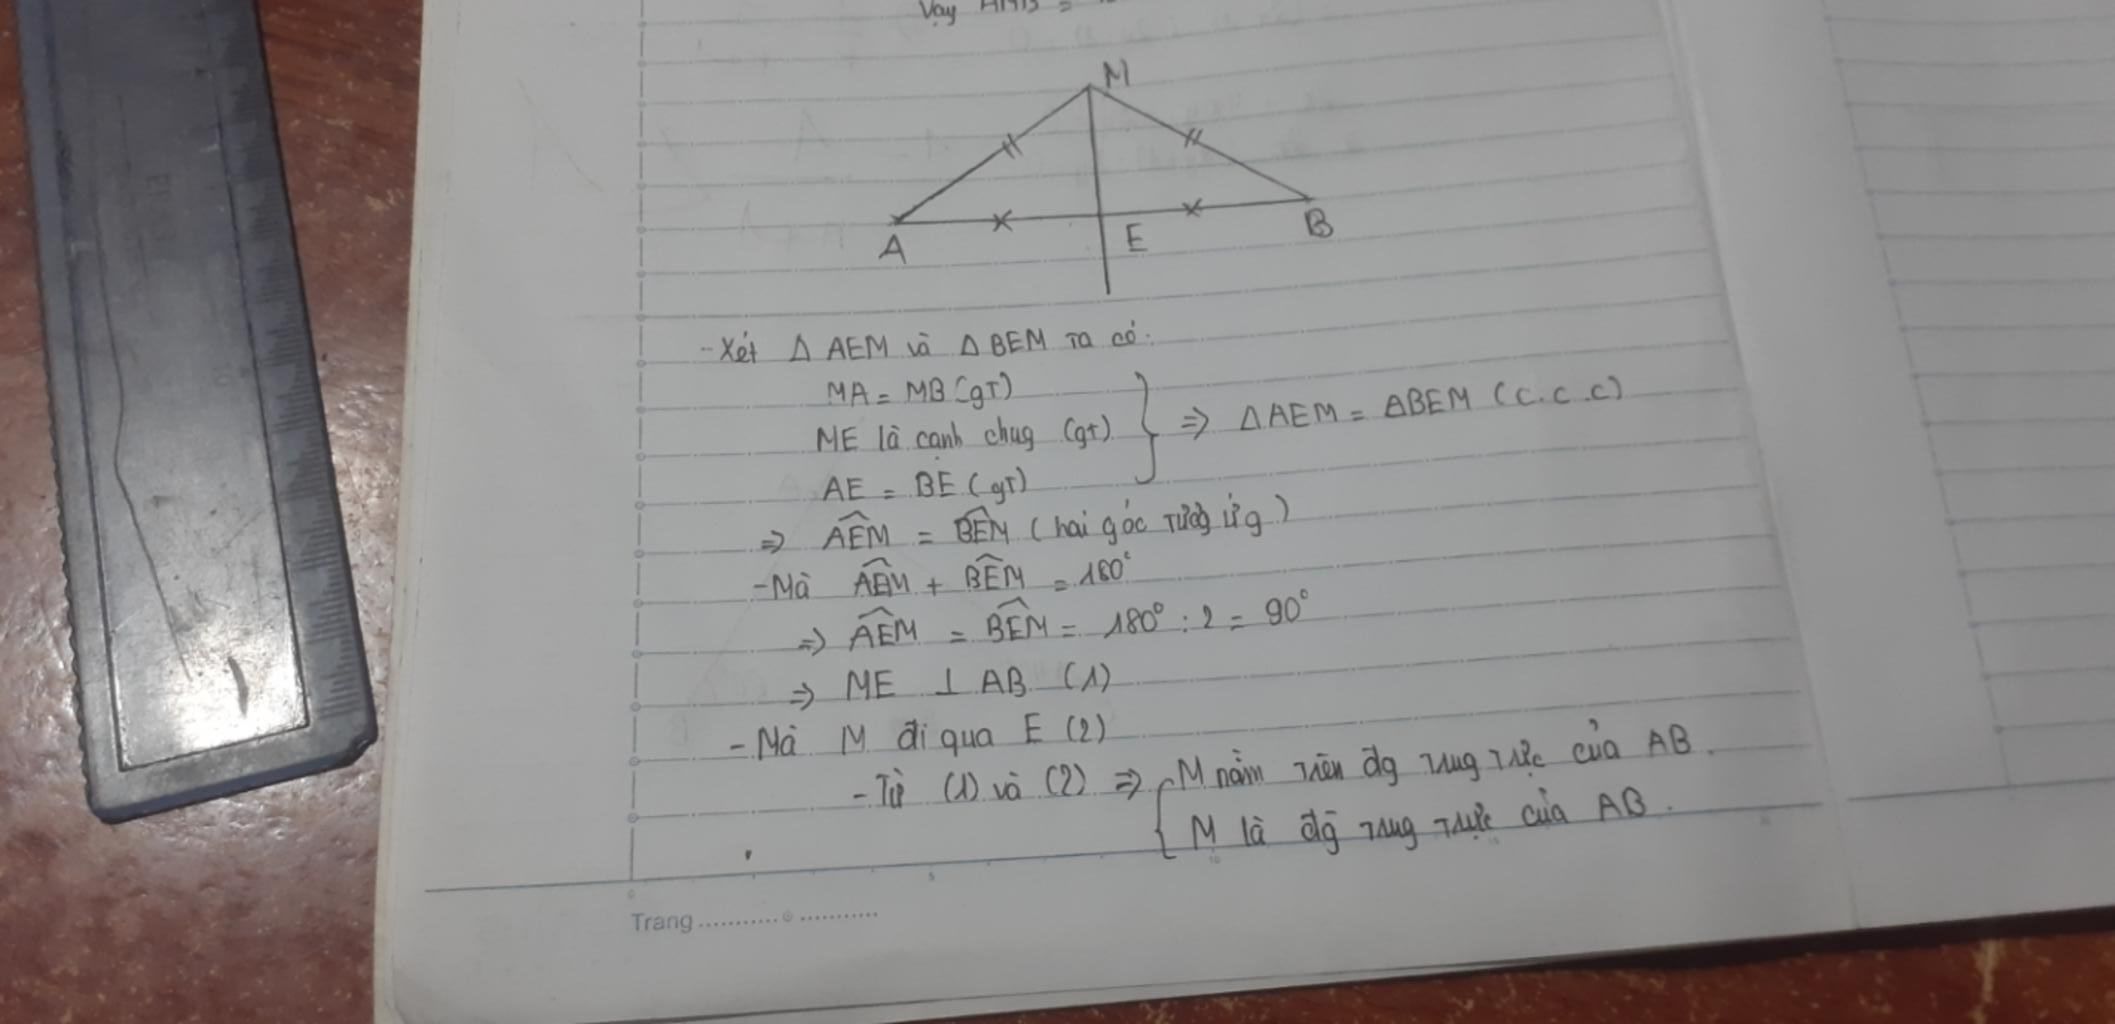 Vậy AMB =
M
A
E
B
- Xét Δ AEM và Δ BEM ta có:
MA = MB (gt)
ME là cạnh chug (gt)
AE = BE (gt)
} ⇒ Δ AEM = ΔBEM (c.c.c)
⇒ \widehat{AEM} = \widehat{BEM} (hai góc tươg ứg)
- Mà \widehat{AEM} + \widehat{BEM} = 180°
⇒ \widehat{AEM} = \widehat{BEM} = 180° : 2 = 90°
⇒ ME ⊥ AB (1)
- Mà M đi qua E (2)
- Từ (1) và (2) ⇒ { M nằm trên đg trug trực của AB.
M là đg trug trực của AB.
0
5
10
15
Trang